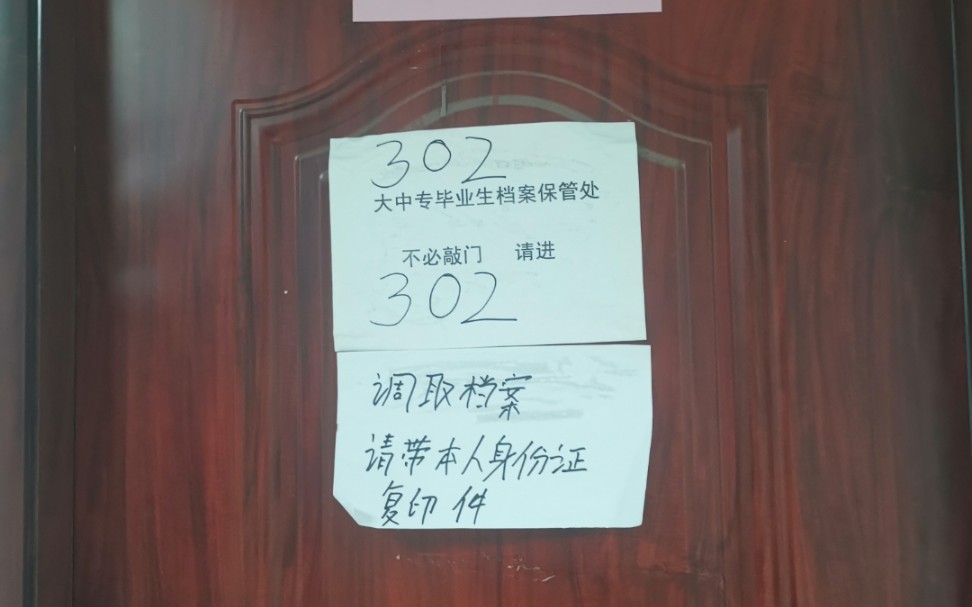 302
大中专毕业生档案保管处
不必敲门 请进
302
调取档案
请带本人身份证
复印件